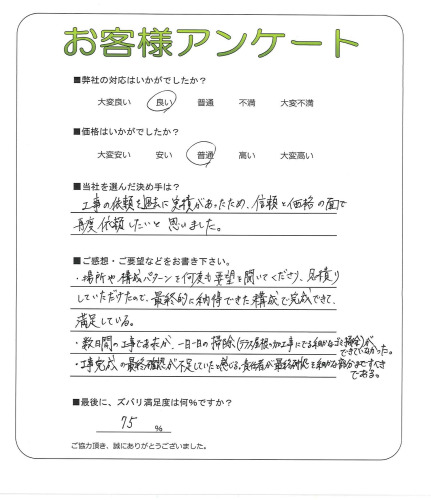 お客様アンケート
■弊社の対応はいかがでしたか？
大変良い 良い 普通 不満 大変不満
■価格はいかがでしたか？
大変安い 安い 普通 高い 大変高い
■当社を選んだ決め手は？
工事の依頼を過去に見積があったため、信頼と価格の面で
再度依頼したいと思いました。
■ご感想・ご要望などをお書き下さい。
・場所や構成パターンを何度も要望を聞いてくださり、見積り
していただけたので、最終的に納得できた構成で完成できて、
満足している。
・数日間の工事であれば、一日一日の掃除(テラス屋根の加工事にでる細かなゴミ掃除)が
できていなかった。
・工事完成の最終確認が不足していたと感じる。責任者が最終確認を細かな部分まですべき
である。
■最後に、ズバリ満足度は何％ですか？
75 %
ご協力頂き、誠にありがとうございました。